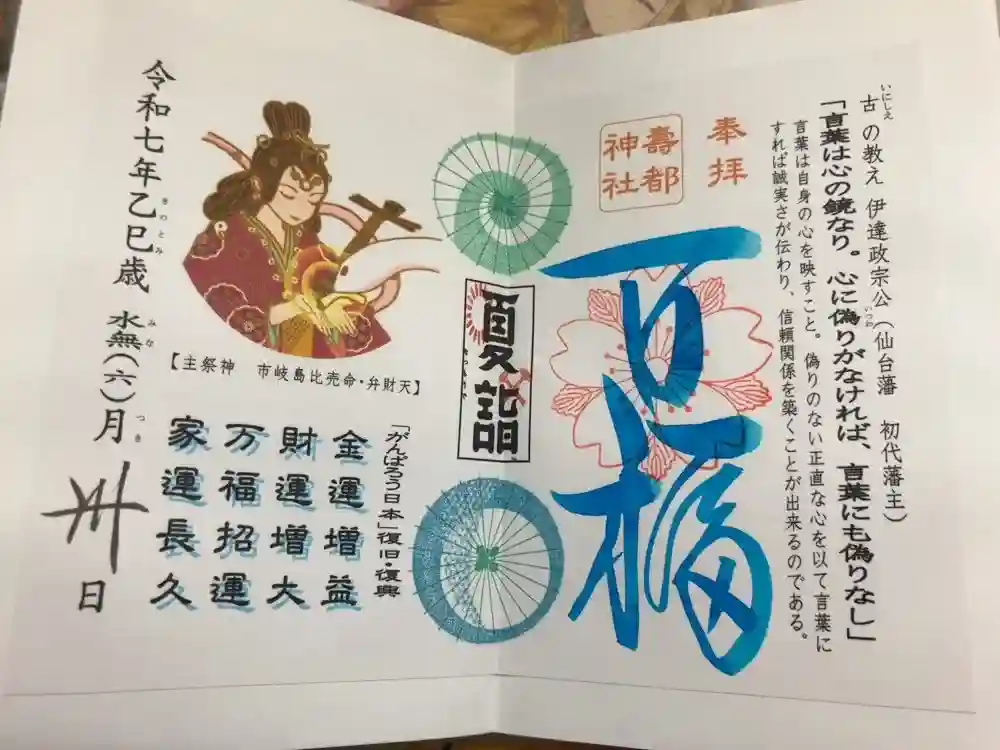 いにしえ
古の教え 伊達政宗公(仙台藩 初代藩主)
いつわ
「言葉は心の鏡なり。心に偽りがなければ、言葉にも偽りなし」
言葉は自身の心を映すこと。偽りのない正直な心を以て言葉に
すれば誠実さが伝わり、信頼関係を築くことが出来るのである。
奉拝
壽都
神社
百福
夏詣
【主祭神 市岐島比売命・弁財天】
「がんばろう日本」復旧・復興
金運増益
財運増大
万福招運
家運長久
令和七年乙巳歳 水無(六)月 卅日
きのとみ
みな
つき